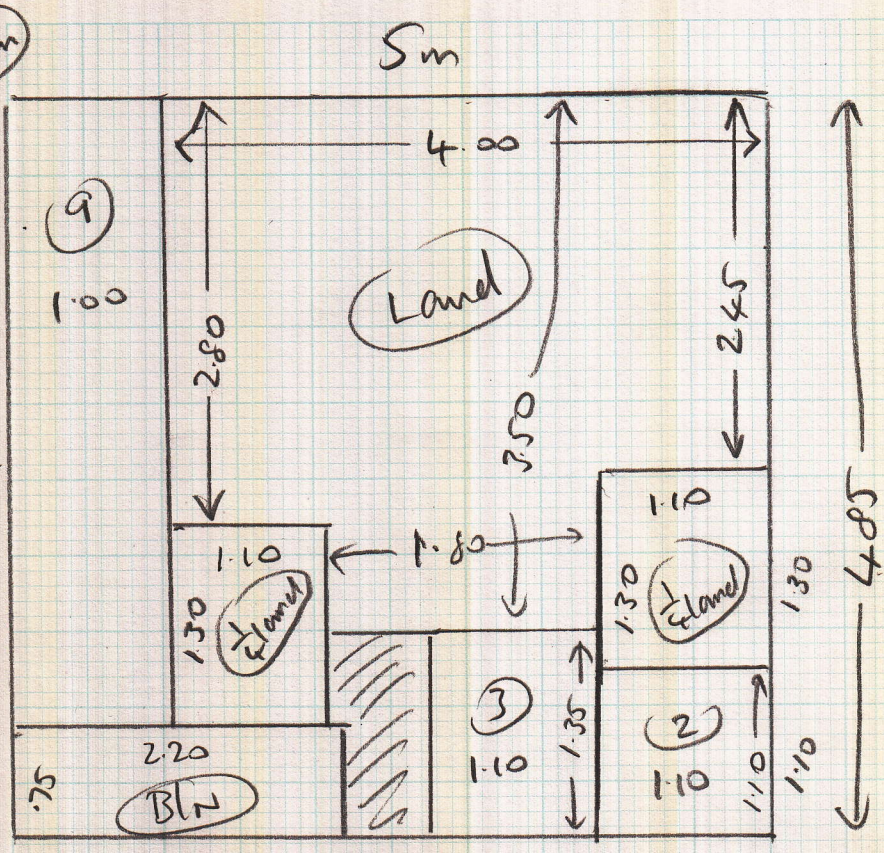 5m
4.00
9
1.00
Land
2.80
3.50
2.45
4.85
1.10
1.30
1/4 land
1.80
1.10
1.30
1/4 land
1.30
3
1.10
1.35
2
1.10
1.10
1.10
2.20
.75
B/N